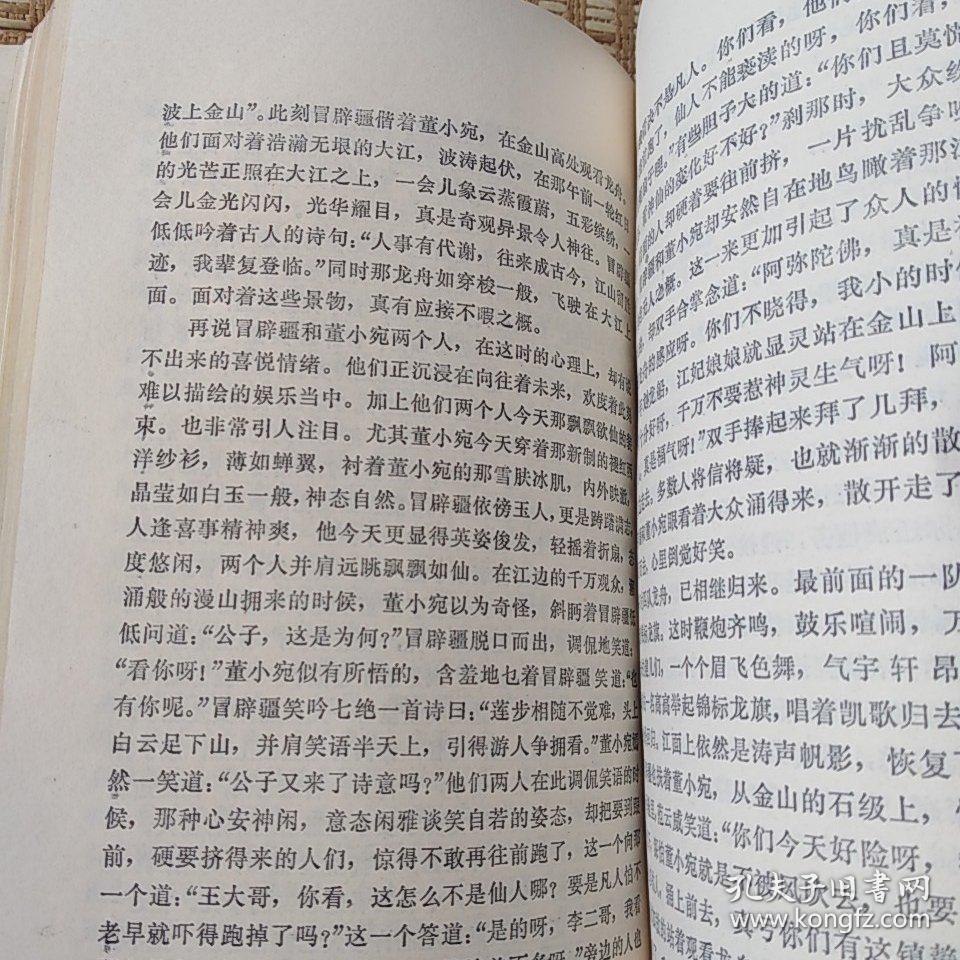 波上金山”。此刻冒辟疆偕着董小宛，在金山高处观看龙舟。
他们面对着浩瀚无垠的大江，波涛起伏，在那午前一轮红日
的光芒正照在大江之上，一会儿象云蒸霞蔚，五彩缤纷，
会儿金光闪闪，光华耀目，真是奇观异景令人神往。冒辟疆
低低吟着古人的诗句：“人事有代谢，往来成古今，江山留
迹，我辈复登临。”同时那龙舟如穿梭一般，飞驶在大江上
面。面对着这些景物，真有应接不暇之概。
再说冒辟疆和董小宛两个人，在这时的心理上，却有说
不出来的喜悦情绪。他们正沉浸在向往着未来，欢度着此刻
难以描绘的娱乐当中。加上他们两个人今天那飘飘欲仙的
束。也非常引人注目。尤其董小宛今天穿着那新制的褪红西
洋纱衫，薄如蝉翼，衬着董小宛的那雪肤冰肌，内外映澈，
晶莹如白玉一般，神态自然。冒辟疆依傍玉人，更是踌躇满志，
人逢喜事精神爽，他今天更显得英姿俊发，轻摇着折扇，
度悠闲，两个人并肩远眺飘飘如仙。在江边的千万观众，
涌般的漫山拥来的时候，董小宛以为奇怪，斜眄着冒辟疆低
低问道：“公子，这是为何？”冒辟疆脱口而出，调侃地笑道：
“看你呀！”董小宛似有所悟的，含羞地乜着冒辟疆笑道：“也
有你呢。”冒辟疆笑吟七绝一首诗曰：“莲步相随不觉难，头上
白云足下山，并肩笑语半天上，引得游人争拥看。”董小宛
然一笑道：“公子又来了诗意吗？”他们两人在此调侃笑语的时
候，那种心安神闲，意态闲雅谈笑自若的姿态，却把要到
前，硬要挤得来的人们，惊得不敢再往前跑了，这一个向那
一个道：“王大哥，你看，这怎么不是仙人哪？要是凡人怕不
老早就吓得跑掉了吗？”这一个答道：“是的呀，李二哥，我看
旁边的人也
不是凡人。你们看，他们
仙人不能亵渎的呀，你们看，
有些胆子大的道：“你们且莫慌
神仙的变化好不好？”刹那时，大众纷
的人却硬着要往前挤，一片扰乱争
和董小宛却安然自在地鸟瞰着那江
人之概。这一来更加引起了众人的
却双手合掌念道：“阿弥陀佛，真是
的感应呀。你们不晓得，我小的时候
龙船，江妃娘娘就显灵站在金山上
好哥，千万不要惹神灵生气呀！阿
真是福气呀！”双手捧起来拜了几拜，
去，多数人将信将疑，也就渐渐的散
董小宛眼看着大众涌得来，散开走了
心里倒觉好笑。
队龙舟，已相继归来。最前面的一队
龙旗。这时鞭炮齐鸣，鼓乐喧闹，万
儿们，一个个眉飞色舞，气宇轩昂
一名高高举起锦标龙旗，唱着凯歌归去
江面上依然是涛声帆影，恢复了
扶着董小宛，从金山的石级上，
范云威笑道：“你们今天好险呀，
董小宛就是不被风吹去，也要
涌上前去，真亏你们有这镇静
站着观看龙
孔夫子旧书网
www.kongfz.com